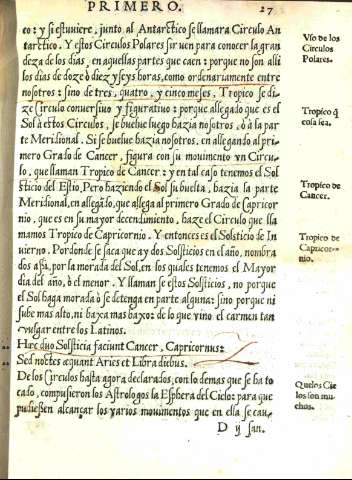 PRIMERO. 27
co: y si estuviere, junto al Antarctico se llamara Circulo An
tarctico. Y estos Circulos Polares siruen para conocer la gran
deza de los dias, en aquellas partes que caen: porque no son alli
los dias de doze ò diez y seys horas, como ordenariamente entre
nosotros: sino de tres, quatro, y cinco meses, Tropico se di-
ze Circulo conuersiuo y figuratiuo: porque allegado que es el
Sol à estos Circulos, se buelue luego hazia nosotros, ò à la par
te Meridional. Si se buelue hazia nosotros, en allegando al pri
mero Grado de Cancer, figura con su mouimiento yn Circu-
lo, que llaman Tropico de Cancer: y en tal caso tenemos el Sol
sticio del Estio, Pero haziendo el Sol su buelta, hazia la parte
Meridional, en allegãdo, que allega al primero Grado de Capricor
nio, que es en su mayor decendimiento, haze el Circulo que lla
mamos Tropico de Capricornio. Y entonces es el Solsticio de In
uierno. Por donde se saca que ay dos Solsticios en el año, nombra
dos assi, por la morada del Sol, en los quales tenemos el Mayor
dia del año, ò el menor. Y llaman se estos Solsticios, no porque
el Sol haga morada ò se detenga en parte alguna: sino porque ni
sube mas alto, ni baxa mas baxo: de lo que vino el carmen tan
vulgar entre los Latinos.
Hæc duo Solsticia faciunt Cancer, Capricornus:
Sed noctes æquant Aries et Libra diebus.
De los Circulos hasta agora declarados, con lo demas que se ha to
cado, compusieron los Astrologos la Esphera del Cielo: para que
pudiessen alcançar los varios mouimentos que en ella se cau-
D ij san.
Vso de los
Circulos
Polares.
Tropico q̃
cosa sea.
Tropico de
Cancer.
Tropico de
Capricor-
nio.
Que los Cir
los son mu-
chos.